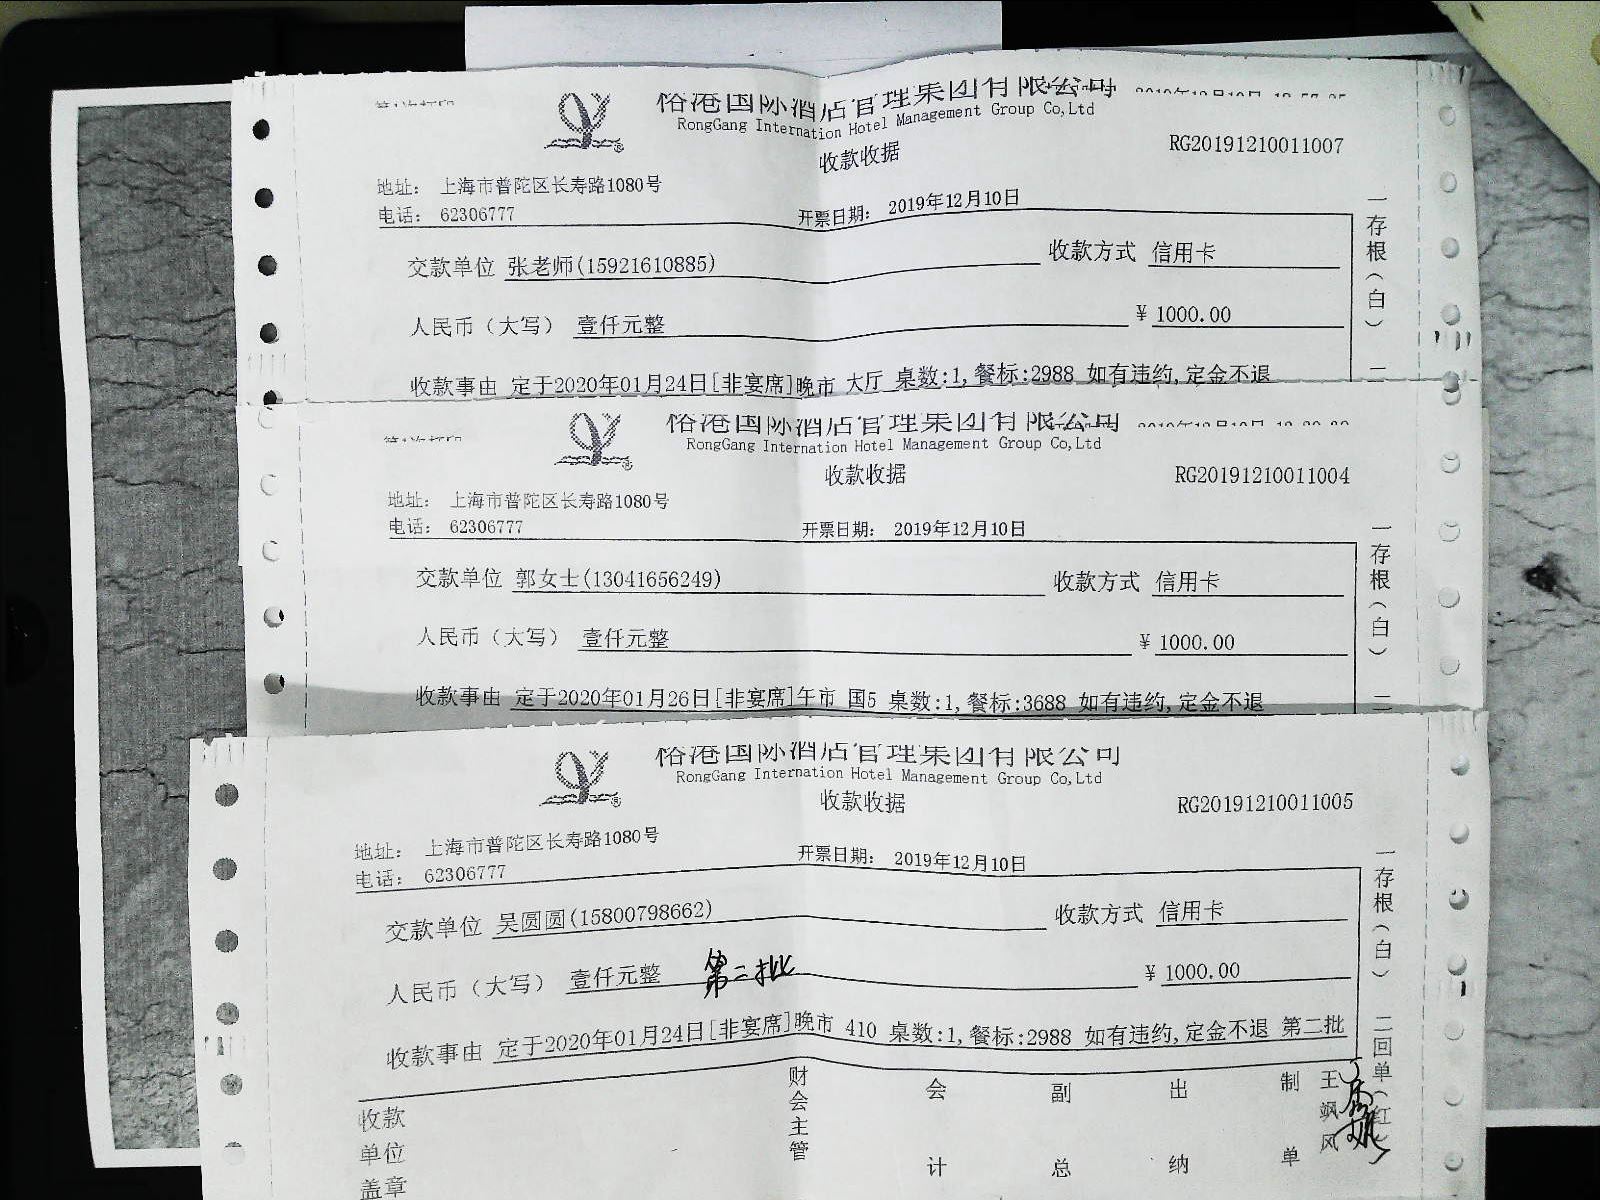 裕港国际酒店管理集团有限公司
RongGang Internation Hotel Management Group Co,Ltd
收款收据
RG20191210011007
地址: 上海市普陀区长寿路1080号
电话: 62306777
开票日期: 2019年12月10日
交款单位 张老师(15921610885) 收款方式 信用卡
人民币(大写) 壹仟元整 ¥ 1000.00
收款事由 定于2020年01月24日[非宴席]晚市 大厅 桌数:1,餐标:2988 如有违约,定金不退
一存根(白)
二
第1次打印
裕港国际酒店管理集团有限公司
RongGang Internation Hotel Management Group Co,Ltd
收款收据
RG20191210011004
地址: 上海市普陀区长寿路1080号
电话: 62306777
开票日期: 2019年12月10日
交款单位 郭女士(13041656249) 收款方式 信用卡
人民币(大写) 壹仟元整 ¥ 1000.00
收款事由 定于2020年01月26日[非宴席]午市 国5 桌数:1,餐标:3688 如有违约,定金不退
一存根(白)
二
裕港国际酒店管理集团有限公司
RongGang Internation Hotel Management Group Co,Ltd
收款收据
RG20191210011005
地址: 上海市普陀区长寿路1080号
电话: 62306777
开票日期: 2019年12月10日
交款单位 吴圆圆(15800798662) 收款方式 信用卡
人民币(大写) 壹仟元整 第二批 ¥ 1000.00
收款事由 定于2020年01月24日[非宴席]晚市 410 桌数:1,餐标:2988 如有违约,定金不退 第二批
一存根(白)
二回单(红)
收款单位盖章
财会主管
会计
副总
出纳
制单
王飒风